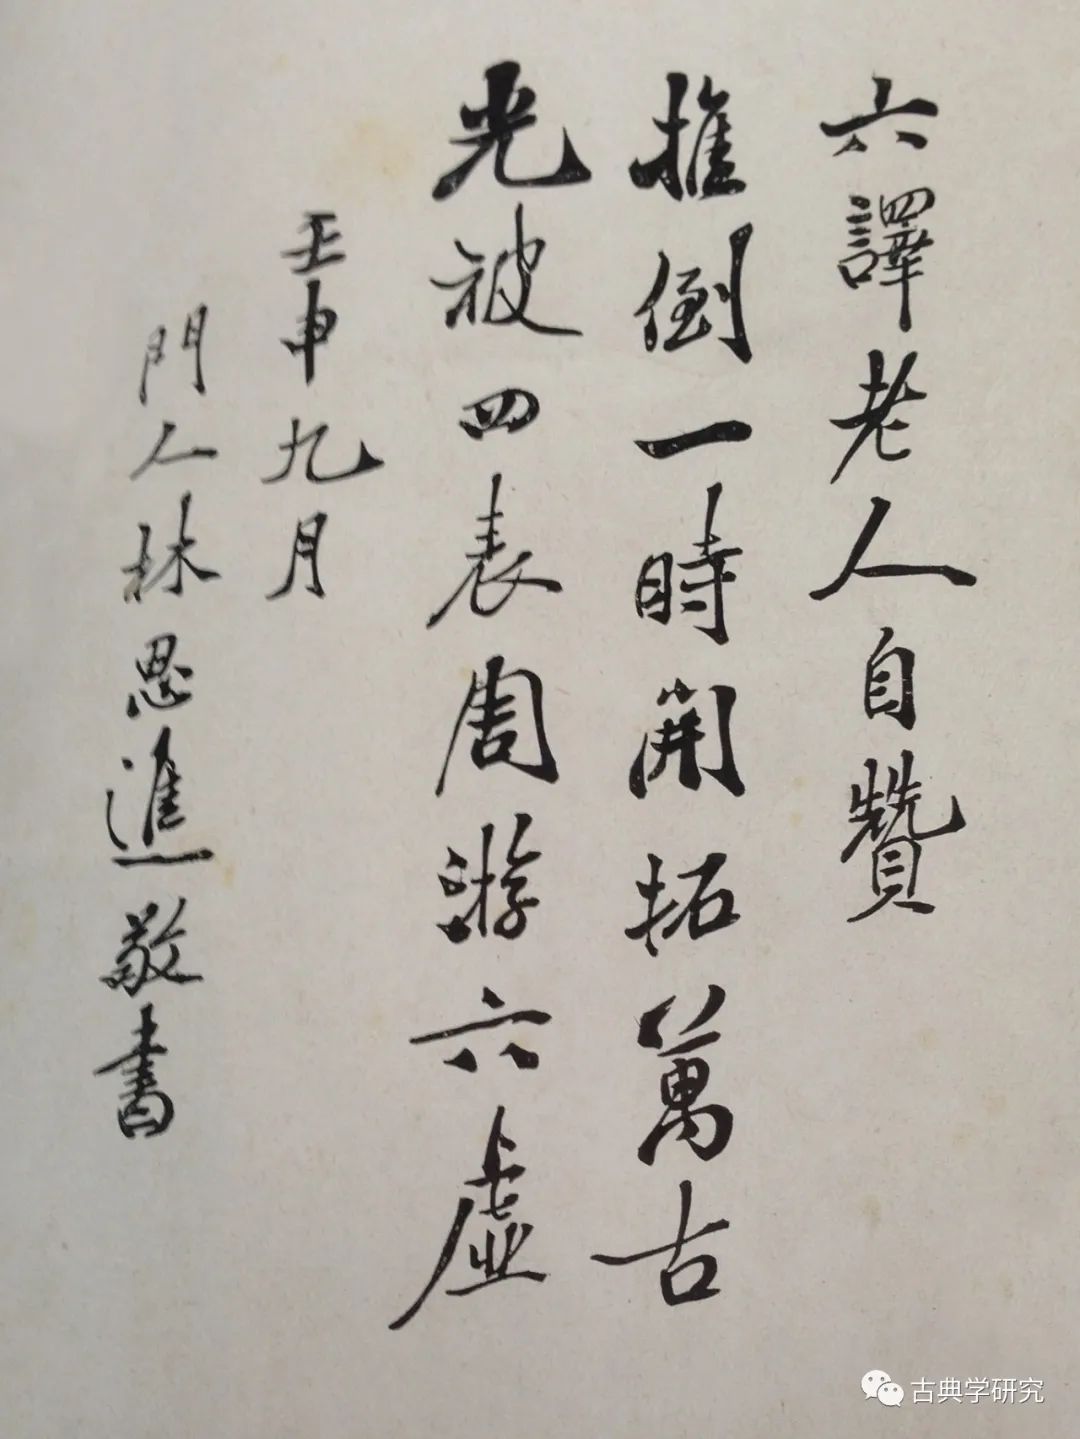 六譯老人自贊
推倒一時開拓萬古
光被四表周游六虛
壬申九月
門人林思進敬書
古典学研究